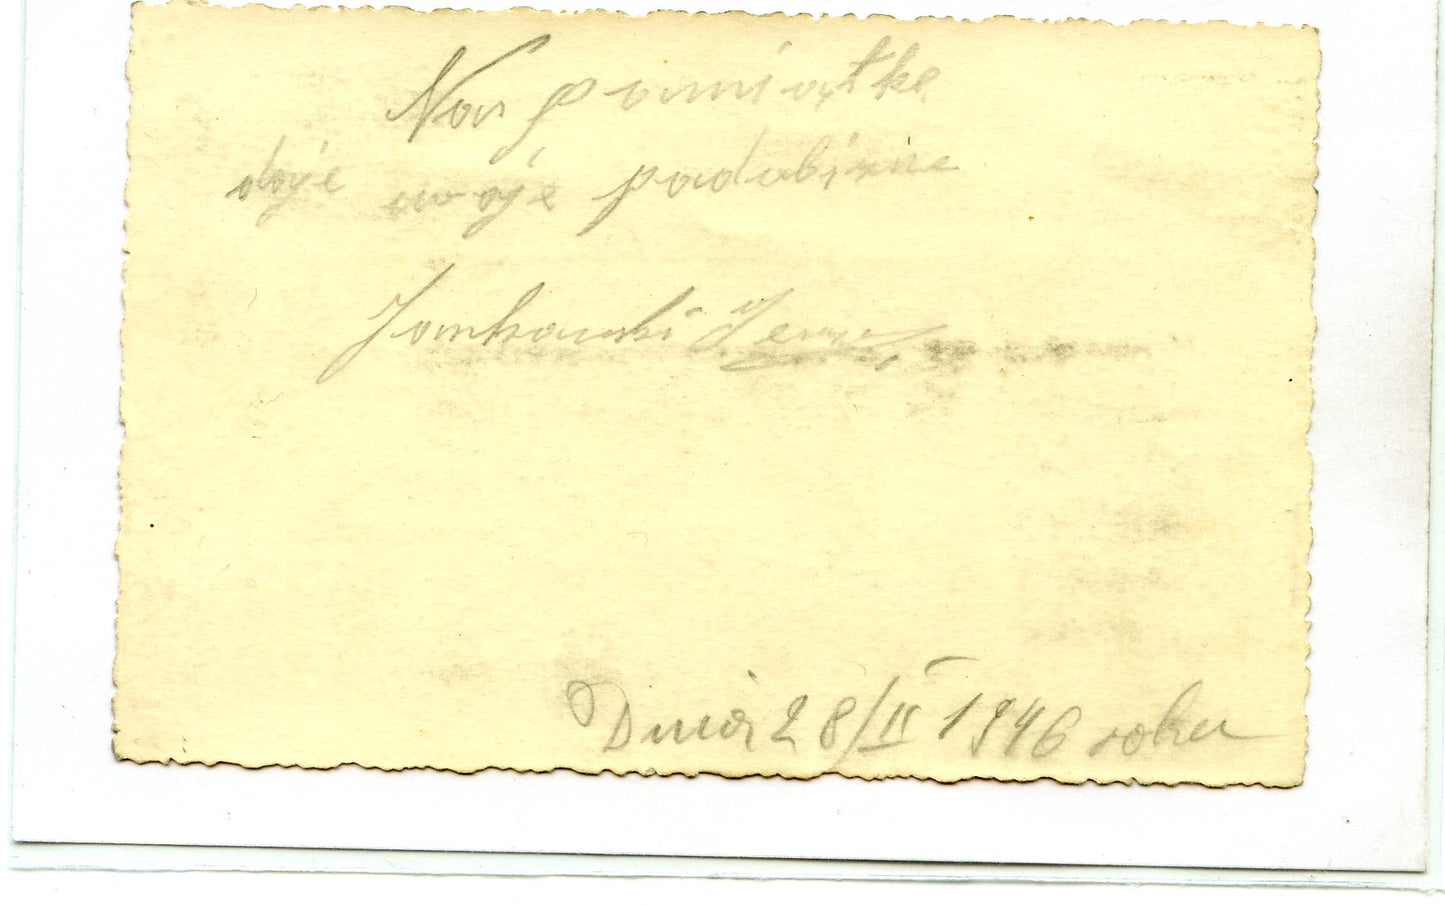 Na pamiątke
daje swoje padobizne
Jankowski Jerzy
Dnia 28/II 1946 roku